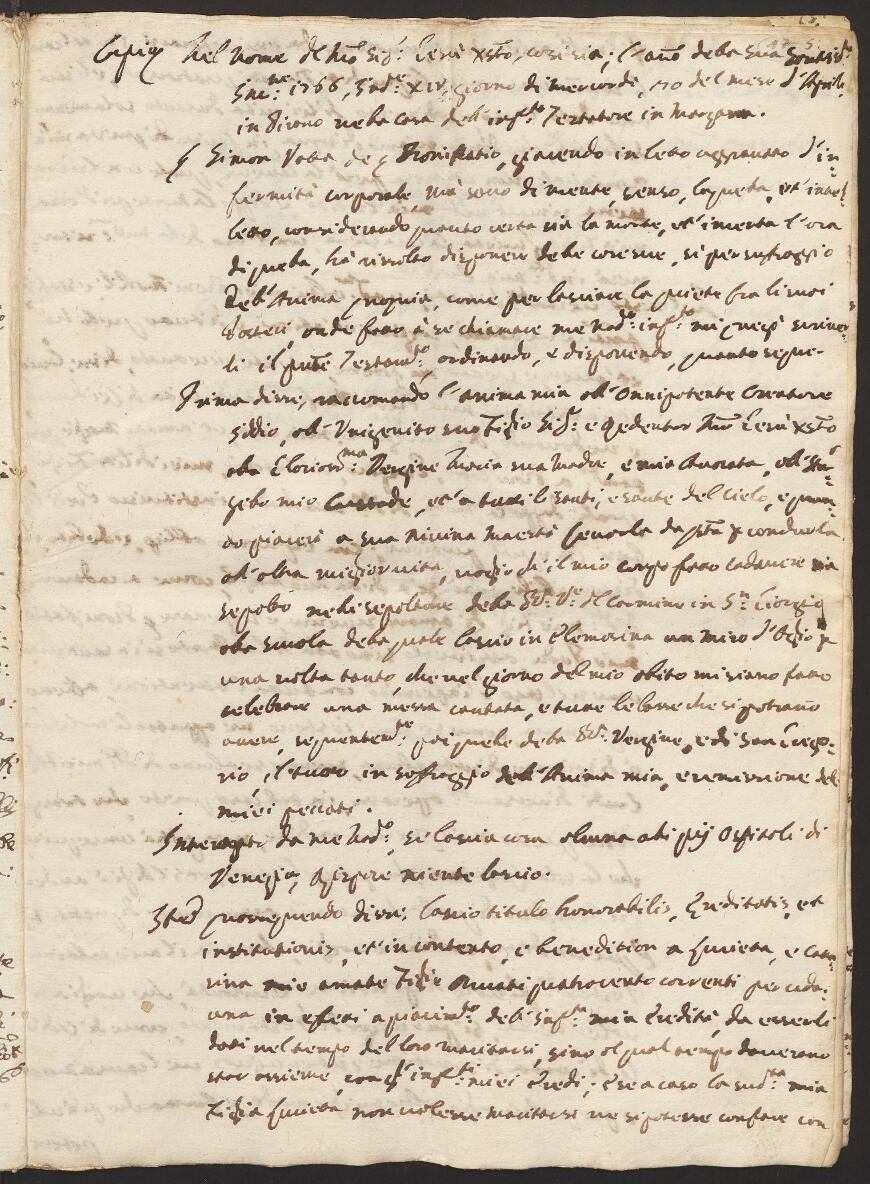 Copia Nel nome del Nro Sigr: Giesù Xsto, così sia; l'anno della Sua Santissa
Inc:ne 1766, Inde: XIV, giorno di mercordi, 30 del mese d'Aprile
in Pirano nella Casa dell'infto: Testatore in Marzana.
Simon Vatta de Bonifatio, giacendo in letto aggrauato d'in-
fermità corporale, mà sano di mente, senso, loquela, et intel-
letto, considerando quanto certa sia la morte, et incerta l'ora
di quella, hà risolto disponere delle cose sue, si per suffraggio
dell'Anima propria, come per lasciare la quiete fra li suoi
Posteri, onde fatto à se chiamare me Nodo: infto: mi ricercò scriver-
li il pnte Testamto, ordinando, e disponendo, quanto segue-
Prima disse, raccomando l'anima mia all'Onnipotente Creatore
Iddio, all'Unigenito suo Figlio Sigr: e Redentor Nro Giesù Xsto
alla Gloriosma: Vergine Maria sua Madre, e mia Auocata, all'An-
gelo mio Custode, et a tutti li Santi, e sante del Cielo, e quan-
do piacerà a sua Diuina Maestà leuarla da qsta p condurla
all'altra miglior uita, uoglio che il mio corpo fatto cadauere sia
sepolto nelle sepolture della Bta: Ve: del Carmine in Sn: Giorgio
alla scuola della quale lascio in Elemosina un miro d'Oglio p
una uolta tanto, che nel giorno del mio obito mi siano fatte
celebrare una messa cantata, e tutte le basse che si potranno
auere, seguentemte: poi quelle della Bta: Vergine, e di San Grego-
rio, il tutto in suffraggio dell'Anima mia, e remissione delli
miei peccati.
Interogato da me Nodo:, se lascia cosa alcuna alli pij Ospitali di
Venezia, rispose niente lascio.
Item proseguendo disse, lascio titulo honorabilis, Ereditatis, et
institutionis, et in contento, e benedition a Giulieta, e Cata-
rina mie amate Figlie Ducati quatrocento correnti per cada-
una in effetti a piacimto: dell'Infta: mia Eredità, da esserli
dati nel tempo del loro maritarsi, sino al qual tempo doueranno
star assieme, con gl'infti: miei Eredi; Ese a caso la sudta: mia
Figlia Giulieta non uolesse maritarsi ne si potesse confare con